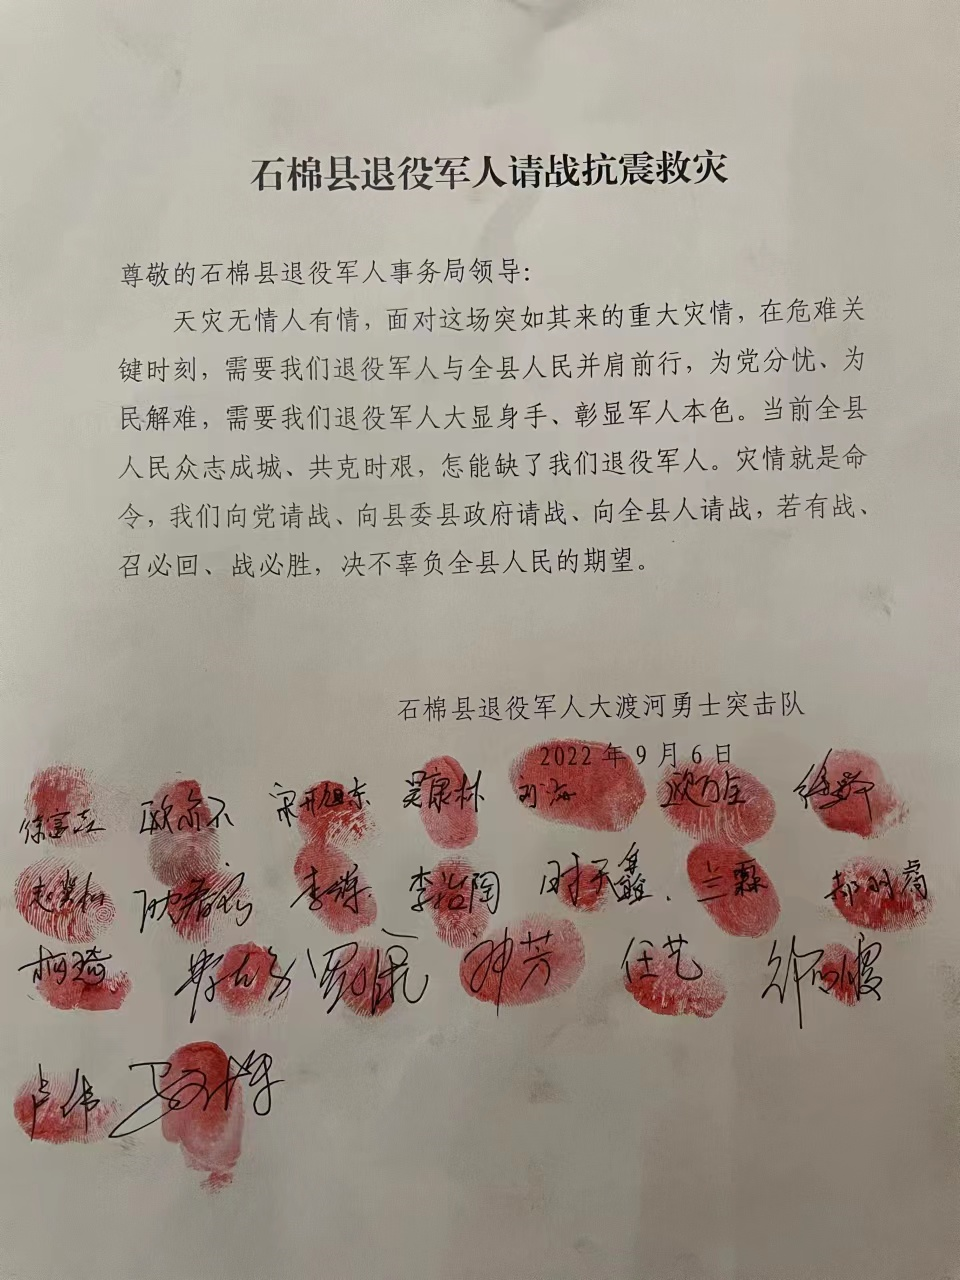 石棉县退役军人请战抗震救灾
尊敬的石棉县退役军人事务局领导：
天灾无情人有情，面对这场突如其来的重大灾情，在危难关
键时刻，需要我们退役军人与全县人民并肩前行，为党分忧、为
民解难，需要我们退役军人大显身手、彰显军人本色。当前全县
人民众志成城、共克时艰，怎能缺了我们退役军人。灾情就是命
令，我们向党请战、向县委县政府请战、向全县人请战，若有战、
召必回、战必胜，决不辜负全县人民的期望。
石棉县退役军人大渡河勇士突击队
2022年9月6日
吴康林 刘海
李涛 李岩陶 兰霖
柯琦 钟芳 任艺
卢伟